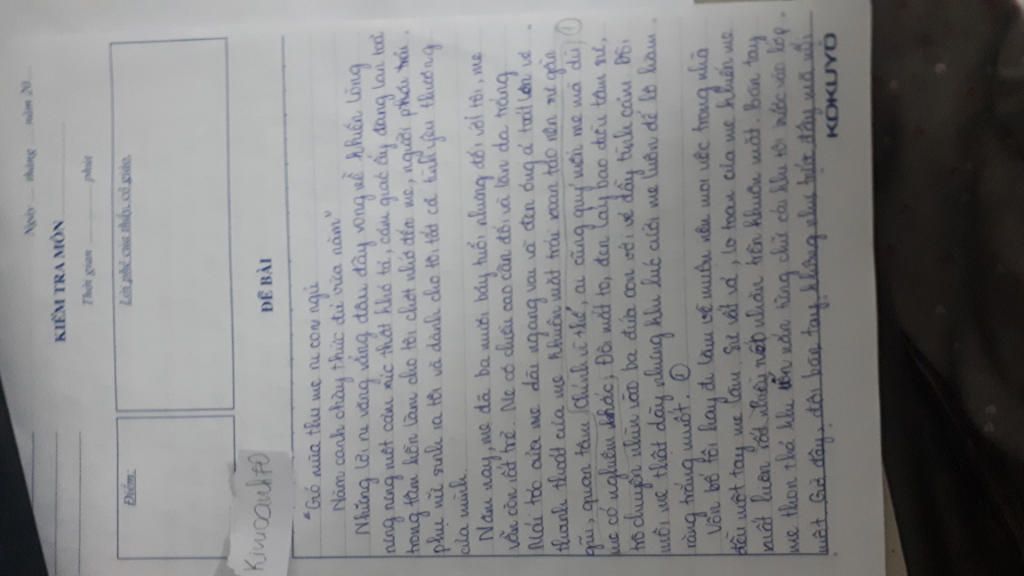 Ngày ..... tháng ..... năm 20.....
KIỂM TRA MÔN
Thời gian ........... phút
Điểm:
Lời phê của thầy, cô giáo.
Kimoanh70
ĐỀ BÀI
"Gió mùa thu mẹ ru con ngủ
Năm canh chày thức đủ vừa năm"
Những lời ru văng vẳng đâu đây vọng về khiến lòng
nặng một cảm xúc thật khó tả, cảm giác ấy đang lan toả
trong tâm hồn làm cho tôi chợt nhớ đến mẹ, người phụ
nữ sinh ra tôi và dành cho tôi tất cả tình yêu thương
của mình.
Năm nay, mẹ đã ba mươi bảy tuổi nhưng đối với tôi, mẹ
vẫn còn rất trẻ. Mẹ có chiều cao cân đối và làn da trắng
Mái tóc của mẹ dài ngang vai và đen óng ả trông
thanh thoát của mẹ khuôn mặt trái xoan tạo nên sự gần
gũi, quan tâm. Chính vì thế, ai cũng quý mến mẹ mà dù
mẹ có nghiêm khắc. Đôi mắt to, đen láy bao dời tâm sự,
trò chuyện nhìn vào ba đứa con với vẻ đầy tình cảm. Đôi
môi mẹ thật dày nhưng khi lúc cười mẹ luôn để lộ hàm
răng trắng muốt.
Vốn bố tôi hay đi làm về muộn nên mọi việc trong nhà
đều một tay mẹ làm. Sự vất vả, lo toan của mẹ khiến mẹ
luôn rất nhiều nếp nhăn trên khuôn mặt. Bàn tay
mẹ thon thả khi uốn nắn từng chữ cái khi tôi mới vào lớp
một. Giờ đây, đôi bàn tay không như trước đây mà nổi
KOKUYO